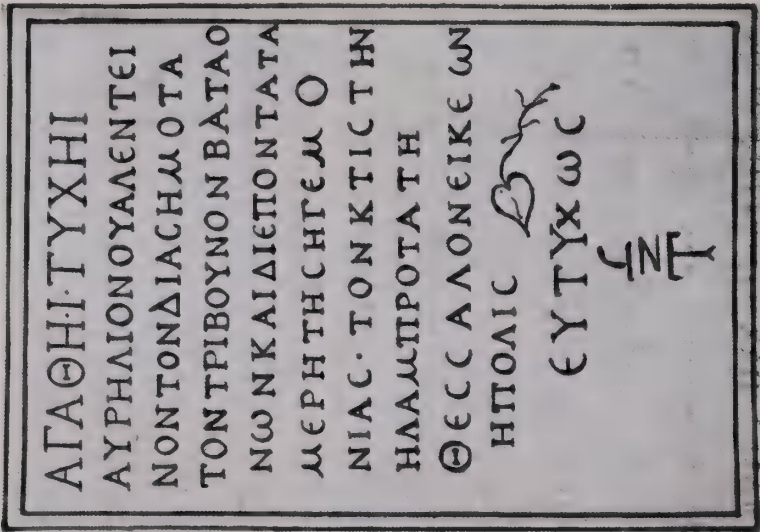 ΑΓΑΘΗ·Ι·ΤΥΧΗΙ
ΑΥΡΗΛΙΟΝΟΥΑΛЄΝΤЄΙ
ΝΟΝΤΟΝΔΙΑϹΗΜΟΤΑ
ΤΟΝΤΡΙΒΟΥΝΟΝΒΑΤΑΟ
ΝωΝΚΑΙΔΙЄΠΟΝΤΑΤΑ
ΜЄΡΗΤΗϹΗΓЄΜΟ
ΝΙΑϹ·ΤΟΝΚΤΙϹΤΗΝ
ΗΛΑΜΠΡΟΤΑΤΗ
ΘЄϹϹΑΛΟΝЄΙΚЄωΝ
ΗΠΟΛΙϹ
ЄΥΤΥΧωϹ